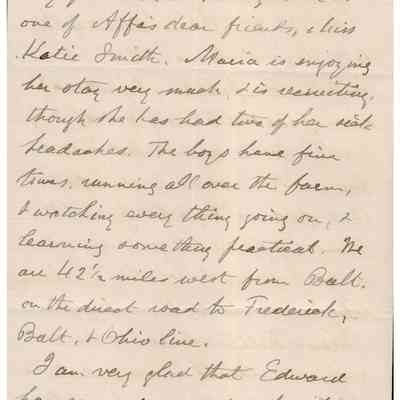 one of Affa's dear friends, Miss
Katie Smith. Maria is enjoying
her stay very much, & is recruiting,
though she has had two of her sick
headaches. The boys have fine
times, running all over the farm,
& watching every thing going on, &
learning something practical. We
are 42½ miles west from Balt.
on the direct road to Frederick,
Balt. & Ohio line.
I am very glad that Edward